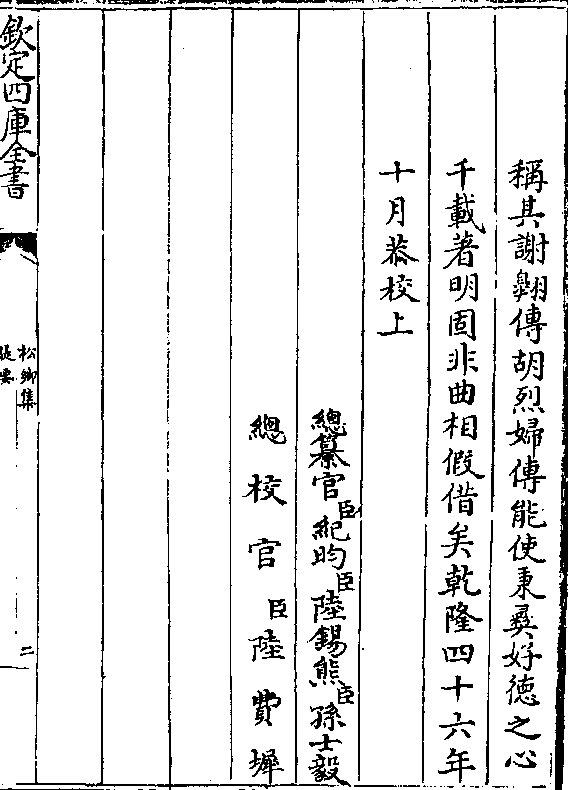 稱其謝翺傳胡烈婦傳能使秉彝好德之心
千載著明固非曲相假借矣乾隆四十六年
十月恭校上
總纂官臣紀昀臣陸錫熊臣孫士毅
總校官臣陸費墀
欽定四庫全書
松鄉集
提要
二